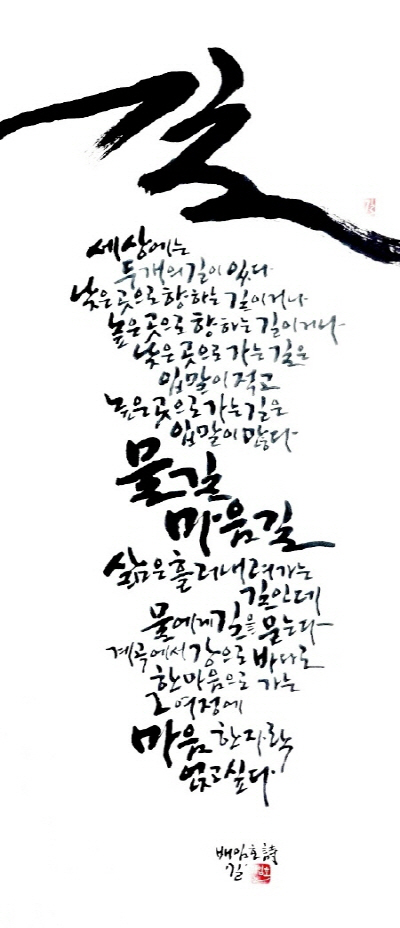 길
세상에는
두개의 길이 있다
낮은 곳으로 향하는 길이거나
높은 곳으로 향하는 길이거나
낮은 곳으로 가는 길은
입말이 적고
높은 곳으로 가는 길은
입말이 많다
물길
마음길
삶은 흘러내려가는
길인데
물에게 길을 묻는다
계곡에서 강으로 바다로
한마음으로 가는
그 여정에
마음 한자락
얹고싶다
배임호 詩
'길'